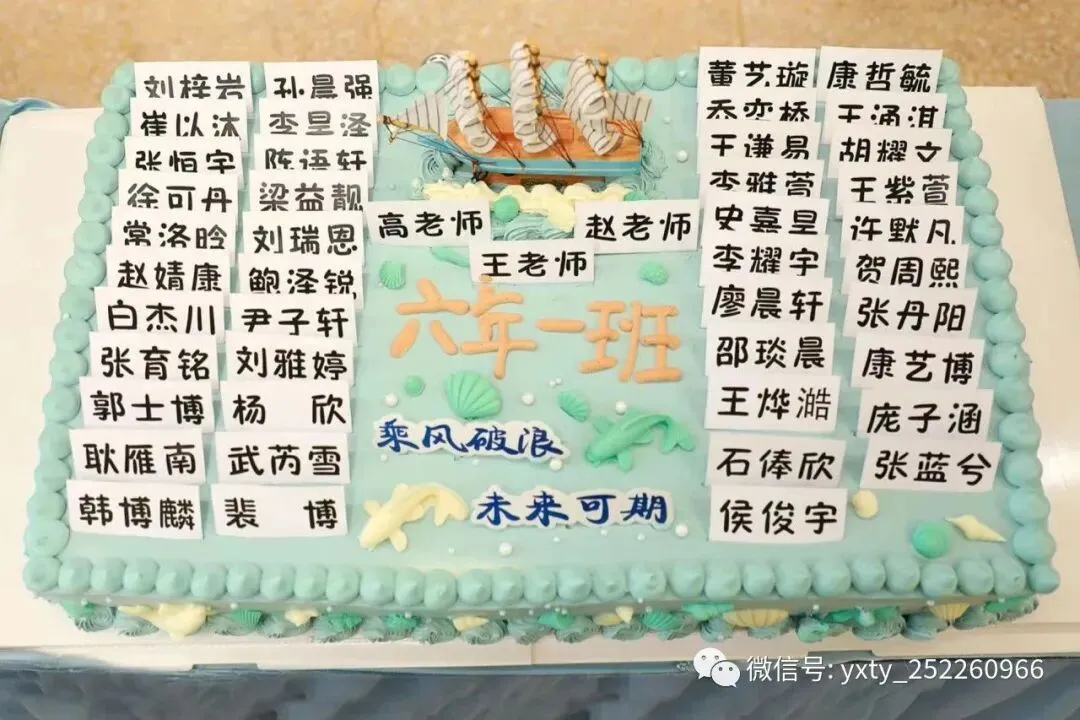 刘梓岩 孙晨强
崔以沐 李昱泽
张恒宇 陈语轩
徐可丹 梁益靓
常洛晗 刘瑞恩
赵婧康 鲍泽锐
白杰川 尹子轩
张育铭 刘雅婷
郭士博 杨 欣
耿雁南 武芮雪
韩博麟 裴 博
高老师 赵老师
王老师
六年一班
乘风破浪
未来可期
董艺璇 康哲毓
乔奕桥 王涌淇
王谦易 胡耀文
李雅萱 王紫萱
史嘉皇 许默凡
李耀宇 贺周熙
廖晨轩 张丹阳
邵琰晨 康艺博
王烨澔 庞子涵
石俸欣 张蓝兮
侯俊宇
微信号: yxty_252260966